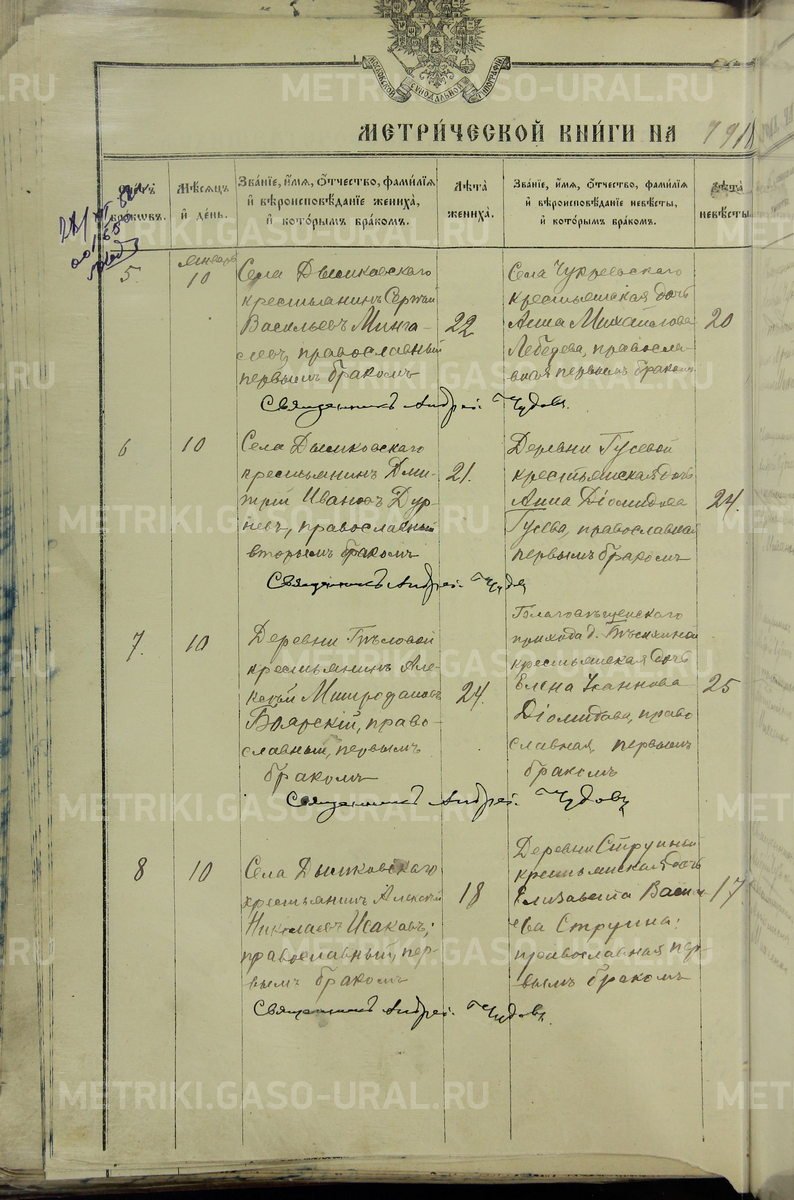 МОСКОВСКОЙ СѴНОДАЛЬНОЙ ТИПОГРАФІИ
METRIKI.GASO-URAL.RU
МЕТРИ́ЧЕСКОЙ КНИ́ГИ НА 191
бра́ковъ.
Мѣ́сяцъ
и҆ де́нь.
Зва́нїе, и҆́мѧ, ѻ҆́тчество, фами́лїѧ
и҆ вѣроисповѣ́данїе жениха̀,
и҆ кото́рымъ бра́комъ.
Лѣ́та
жениха̀.
Зва́нїе, и҆́мѧ, ѻ҆́тчество, фами́лїѧ
и҆ вѣроисповѣ́данїе невѣ́сты,
и҆ кото́рымъ бра́комъ.
Лѣ́та
невѣ́сты
5
январь
10
Села Дымковскаго
крестьянинъ Сергѣй
Васильевъ Минга-
левъ, православный
первымъ бракомъ
22
Села Чукреевскаго
крестьянская дочь
Анна Михайлова
Лебедева, правосла-
вная первымъ бракомъ
20
Священникъ Андрей Чудовъ.
6
10
Села Дымковскаго
крестьянинъ Дми-
трій Ивановъ Дур-
невъ, православный
вторымъ бракомъ
21.
Деревни Гусевой
крестьянская дочь
Анна Діомидова
Гусева, православная
первымъ бракомъ
24.
Священникъ Андрей Чудов
7.
10
Деревни
крестьянинъ Але-
ксѣй Митрофановъ
Боярскій, право-
славный, первымъ
бракомъ
24.
Благовѣщенскаго
прихода д.
крестьянская дочь
Елена
Діомидова, право
славная, первымъ
бракомъ
25
Священникъ Андрей Чудовъ
8
10
Села Дымковскаго
крестьянинъ Алексѣй
Николаевъ Исаковъ,
православный, пер-
вымъ бракомъ
18
Деревни Струиной
крестьянская дочь
Елизавета Василь
ева Струина,
православная пер-
вымъ бракомъ
17
Священникъ Андрей Чудовъ.